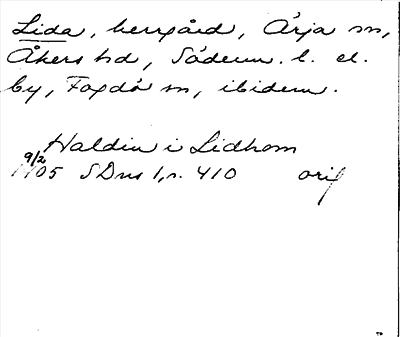 Lida, herrgård, Ärja sn,
Åkers hd, Söderm. l. el.
by, Fogdö sn, ibidem.
Haldin i Lidhem
9/2
1405 SDns 1, n. 410 orig